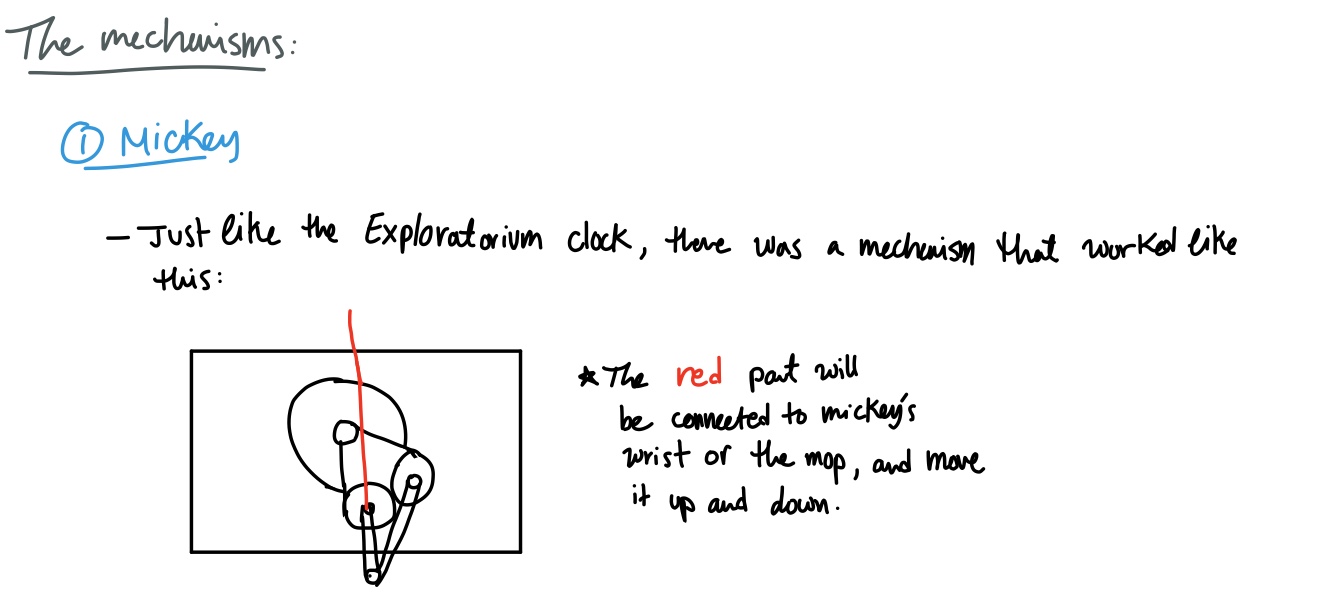 The mechanisms:
① Mickey
- Just like the Exploratorium clock, there was a mechanism that worked like
this:
★ The red part will
be connected to mickey's
wrist or the mop, and move
it up and down.